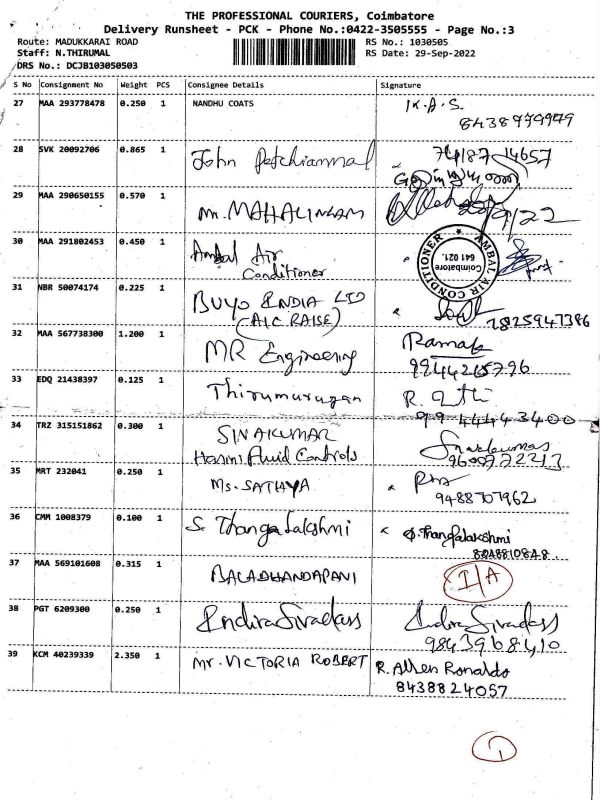 THE PROFESSIONAL COURIERS, Coimbatore
Delivery Runsheet - PCK - Phone No.:0422-3505555 - Page No.:3
Route: MADUKKARAI ROAD
Staff: N.THIRUMAL
DRS No.: DCJB103050503
RS No.: 1030505
RS Date: 29-Sep-2022
S No Consignment No Weight PCS Consignee Details Signature
27 MAA 293778478 0.250 1 NANDHU COATS K.A.S.
28 SVK 20092706 0.865 1 John Petchiammal 74187 14657
29 MAA 290650155 0.570 1 Mr. MAHALINGAM
30 MAA 291802453 0.450 1 Ambal Air
Conditioner
AMBAL AIR CONDITIONER
Coimbatore
641 021.
31 NBR 50074174 0.225 1 BUYO INDIA LTD
(A/C RAISE)
7825947386
32 MAA 567738300 1.200 1 MR Engineering Ramak
9944215796
33 EDQ 21438397 0.125 1 Thirumurugan R.
99 44443400
34 TRZ 315151862 0.300 1 SIVAKUMAR Sivakumar
Hasini Fluid Controls 9600772213
35 MRT 232041 0.250 1 Ms. SATHYA
9488707962
36 CMM 1008379 0.100 1 S. Thangalakshmi S. Thangalakshmi
37 MAA 569101608 0.315 1 BALADHANDAPANI I/A
38 PGT 6209300 0.250 1 Indira Sivadass Indira Sivadass
9843968410
39 KCM 40239339 2.350 1 Mr. VICTORIA ROBERT R. Allen Ronaldo
8438824057
1